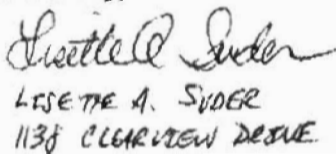 Lisette A Suder
LISETTE A. SUDER
1138 CLEARVIEW DRIVE